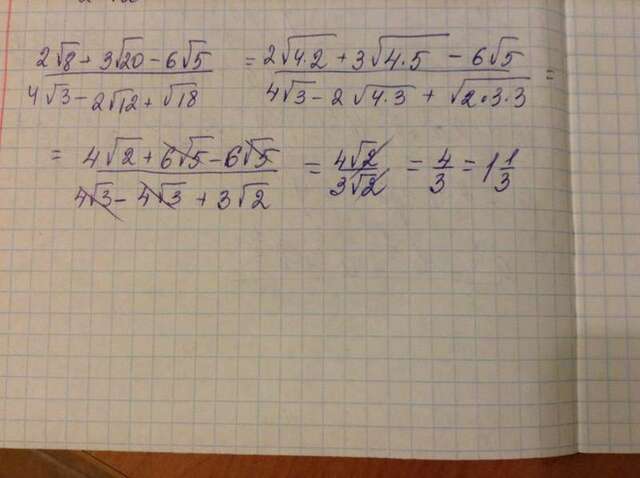 (2√8 + 3√20 - 6√5)/(4√3 - 2√12 + √18) = (2√(4·2) + 3√(4·5) - 6√5)/(4√3 - 2√(4·3) + √(2·3·3)) =
= (4√2 + 6√5 - 6√5)/(4√3 - 4√3 + 3√2) = (4√2)/(3√2) = 4/3 = 1 1/3